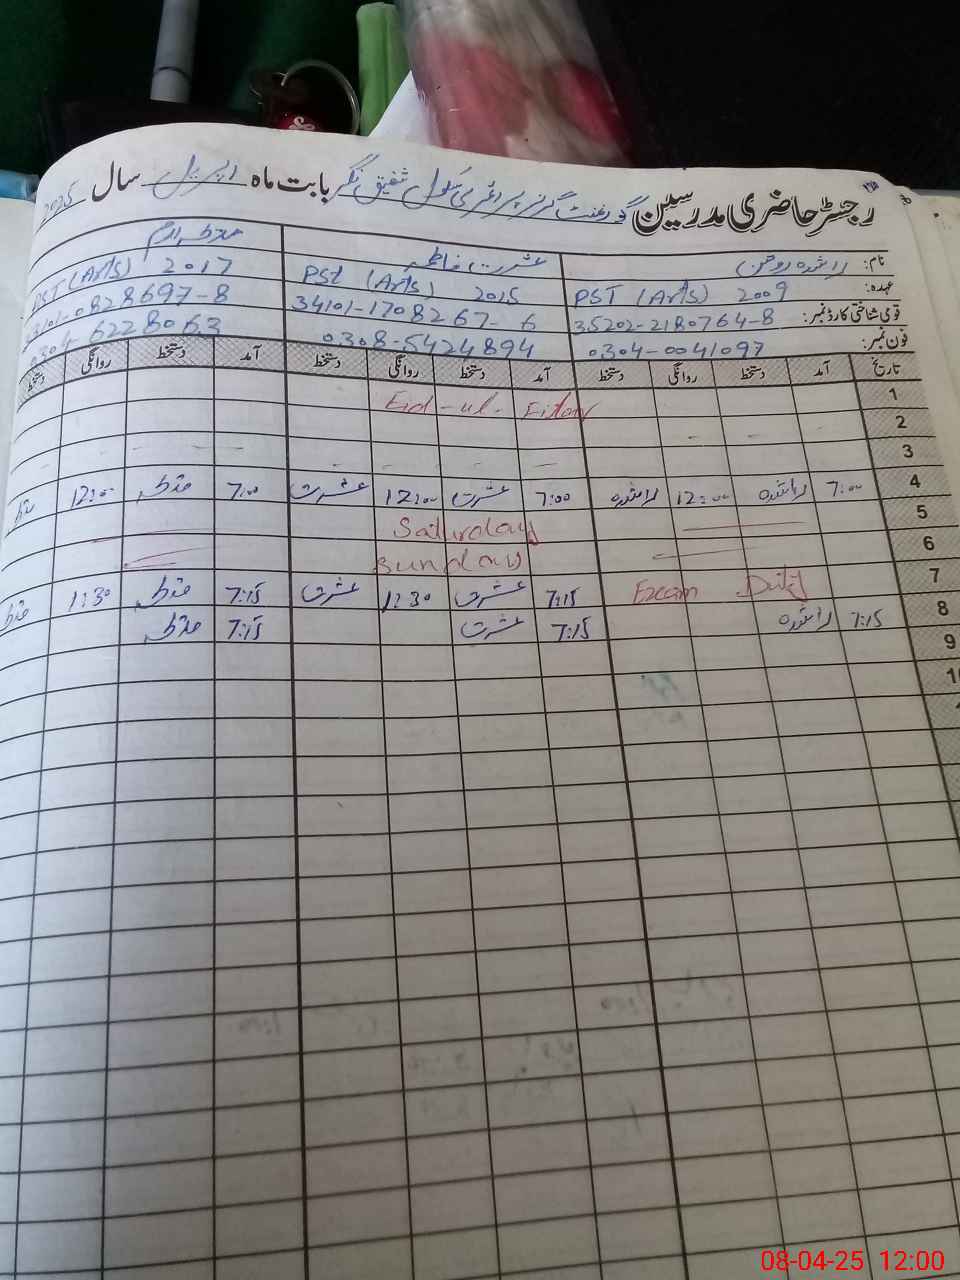 رجسٹر حاضری مدرسین گورنمنٹ گرلز پرائمری سکول شفیق نگر بابت ماہ اپریل سال 2025
نام: راشدہ روحی عشرت فاطمہ
عہدہ: PST (Arts) 2009 PSt (Arts) 2015 PST (Arts) 2017
قومی شناختی کارڈ نمبر: 35202-2180764-8 34101-1708267-6 34101-0828697-8
فون نمبر: 0304-0041097 0308-5424894 0304-6228063
تاریخ آمد دستخط روانگی دستخط آمد دستخط روانگی دستخط آمد دستخط روانگی دستخط
1 Eid-ul-Fitar
2
3
4 7:00 راشدہ 12:00 راشدہ 7:00 عشرت 12:00 عشرت 7:00 12:00
5 Saturday
6 Sunday
7 Exam Duty 7:15 عشرت 1:30 عشرت 7:15 1:30
8 7:15 راشدہ 7:15 عشرت 7:15
9
10
08-04-25 12:00